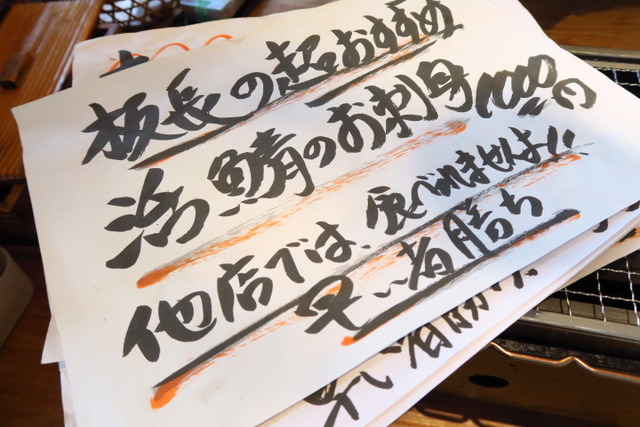 板長の超おすすめ
活〆鯖のお刺身1000円
他店では、食べれませんよ!!
早い者勝ち
早い者勝ち